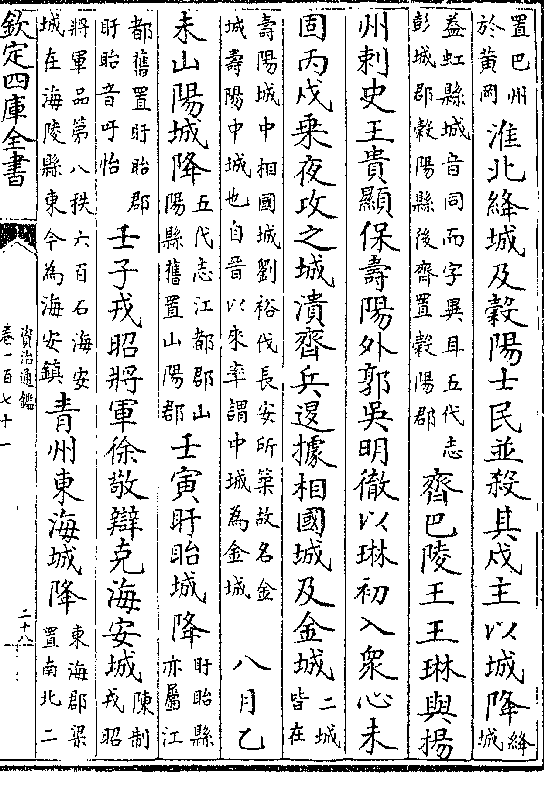 置巴州
於黄岡
淮北絳城及穀陽士民並殺其戍主以城降
絳
城
益虹縣城音同而字異耳五代志
彭城郡穀陽縣後齊置穀陽郡
齊巴陵王王琳與揚
州刺史王貴顯保壽陽外郭吳明徹以琳初入衆心未
固丙戌乗夜攻之城潰齊兵退據相國城及金城
二城
皆在
壽陽城中相國城劉裕伐長安所築故名金
城壽陽中城也自晉以來率謂中城為金城
八月乙
未山陽城降
五代志江都郡山
陽縣舊置山陽郡
壬寅盱眙城降
盱眙縣
亦屬江
都舊置盱眙郡
盱眙音吁怡
壬子戎昭將軍徐敬辯克海安城
陳制
戎昭
將軍品第八秩六百石海安
城在海陵縣東今為海安鎮
青州東海城降
東海郡梁
置南北二
欽定四庫全書
資治通鑑
卷一百七十一
二十八